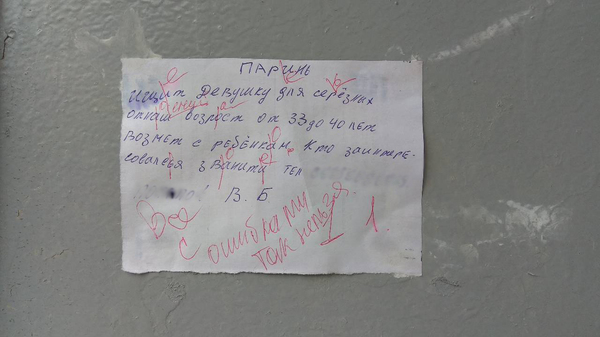 ПАРИНЬ
ищит Девушку для серёзных
отнаш возрост от 33 до 40 лет
возмет с ребёнкам. Кто заинтере-
совалсья званити тел
В. Б
Все
с ошибками
так нельзя.
1